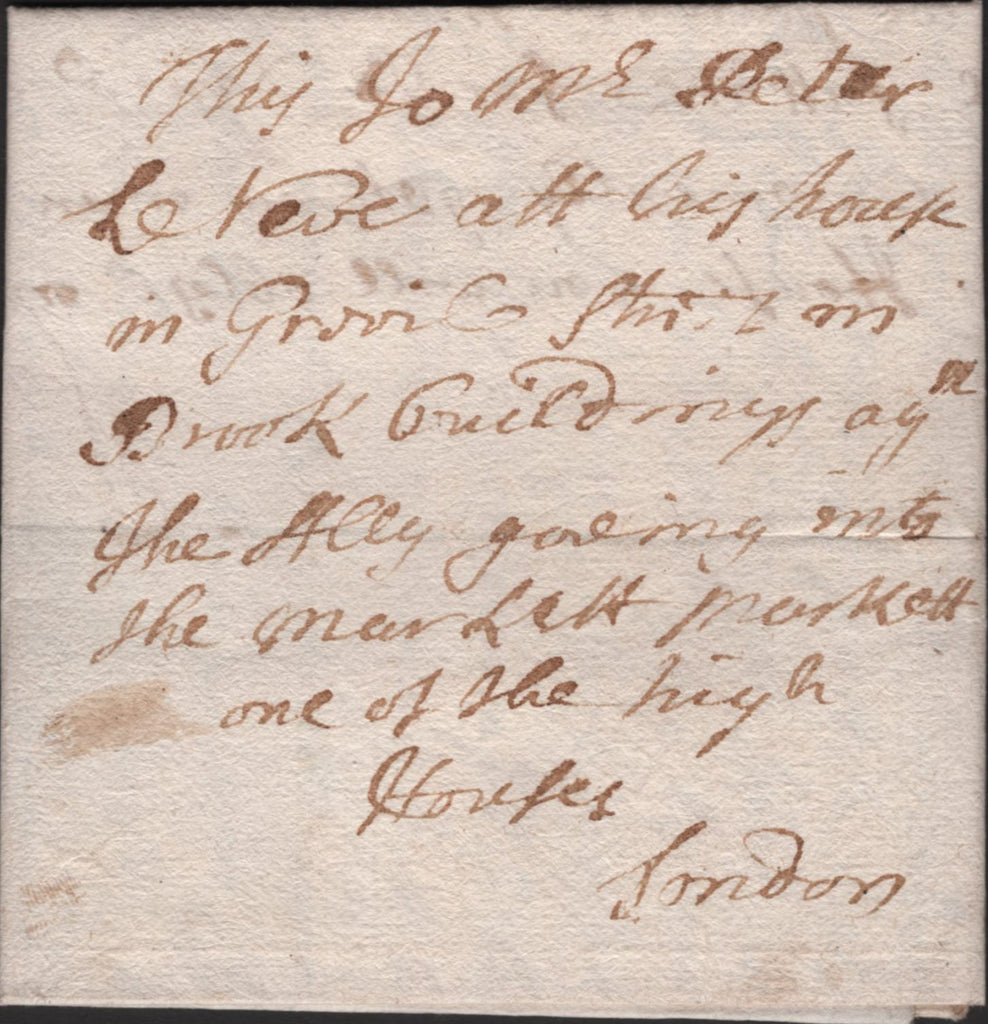 This To Mr Peter
Le Neve att his house
in Grevile Street in
Brook buildings ag
the Ally goeing into
the markett markett
one of the high
Houses
London